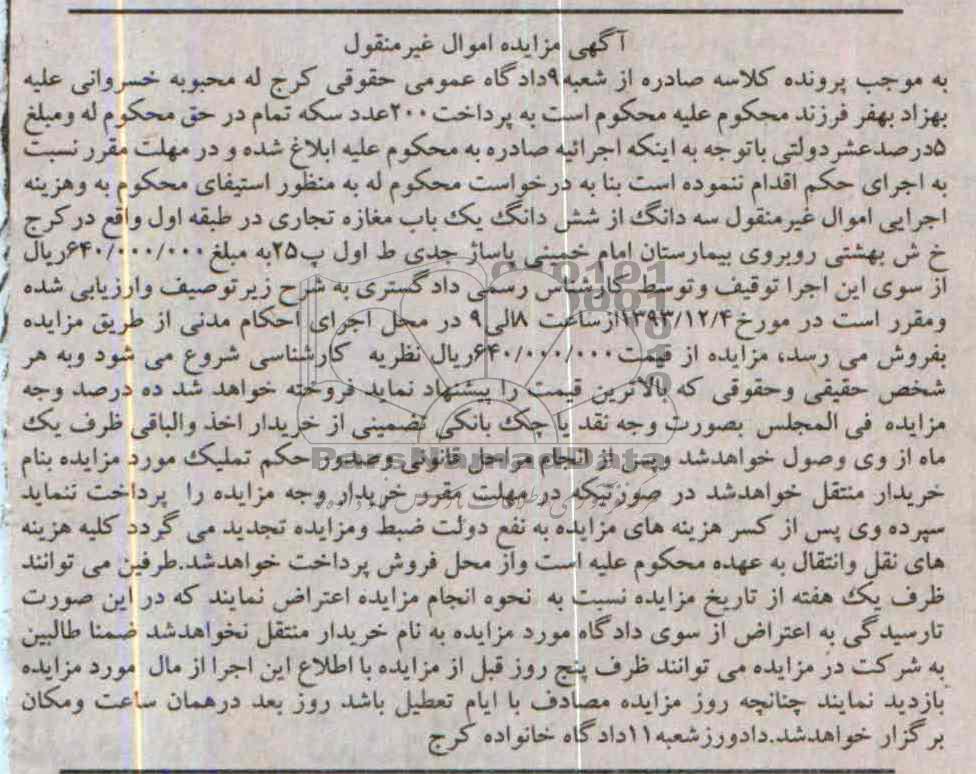 آگهی مزایده اموال غیرمنقول
به موجب پرونده کلاسه صادره از شعبه۹دادگاه عمومی حقوقی کرج له محبوبه خسروانی علیه
بهزاد بهفر فرزند محکوم علیه محکوم است به پرداخت۲۰۰عدد سکه تمام در حق محکوم له ومبلغ
۵درصدعشردولتی باتوجه به اینکه اجرائیه صادره به محکوم علیه ابلاغ شده و در مهلت مقرر نسبت
به اجرای حکم اقدام ننموده است بنا به درخواست محکوم له به منظور استیفای محکوم به وهزینه
اجرایی اموال غیرمنقول سه دانگ از شش دانگ یک باب مغازه تجاری در طبقه اول واقع در کرج
خ ش بهشتی روبروی بیمارستان امام خمینی پاساژ جدی ط اول پ۲۵به مبلغ ۶۴۰/۰۰۰/۰۰۰ریال
از سوی این اجرا توقیف وتوسط کارشناس رسمی دادگستری به شرح زیر توصیف وارزیابی شده
ومقرر است در مورخ۱۳۹۳/۱۲/۴ازساعت ۸الی۹ در محل اجرای احکام مدنی از طریق مزایده
بفروش می رسد، مزایده از قیمت۶۴۰/۰۰۰/۰۰۰ریال نظریه کارشناسی شروع می شود وبه هر
شخص حقیقی وحقوقی که بالاترین قیمت را پیشنهاد نماید فروخته خواهد شد ده درصد وجه
مزایده فی المجلس بصورت وجه نقد یا چک بانکی تضمینی از خریدار اخذ والباقی ظرف یک
ماه از وی وصول خواهدشد وپس از انجام مراحل قانونی وصدور حکم تملیک مورد مزایده بنام
خریدار منتقل خواهدشد در صورتیکه در مهلت مقرر خریدار وجه مزایده را پرداخت ننماید
سپرده وی پس از کسر هزینه های مزایده به نفع دولت ضبط ومزایده تجدید می گردد کلیه هزینه
های نقل وانتقال به عهده محکوم علیه است واز محل فروش پرداخت خواهدشد.طرفین می توانند
ظرف یک هفته از تاریخ مزایده نسبت به نحوه انجام مزایده اعتراض نمایند که در این صورت
تارسیدگی به اعتراض از سوی دادگاه مورد مزایده به نام خریدار منتقل نخواهدشد ضمنا طالبین
به شرکت در مزایده می توانند ظرف پنج روز قبل از مزایده با اطلاع این اجرا از مال مورد مزایده
بازدید نمایند چنانچه روز مزایده مصادف با ایام تعطیل باشد روز بعد درهمان ساعت ومکان
برگزار خواهدشد.دادورزشعبه۱۱دادگاه خانواده کرج
ParsNamadData